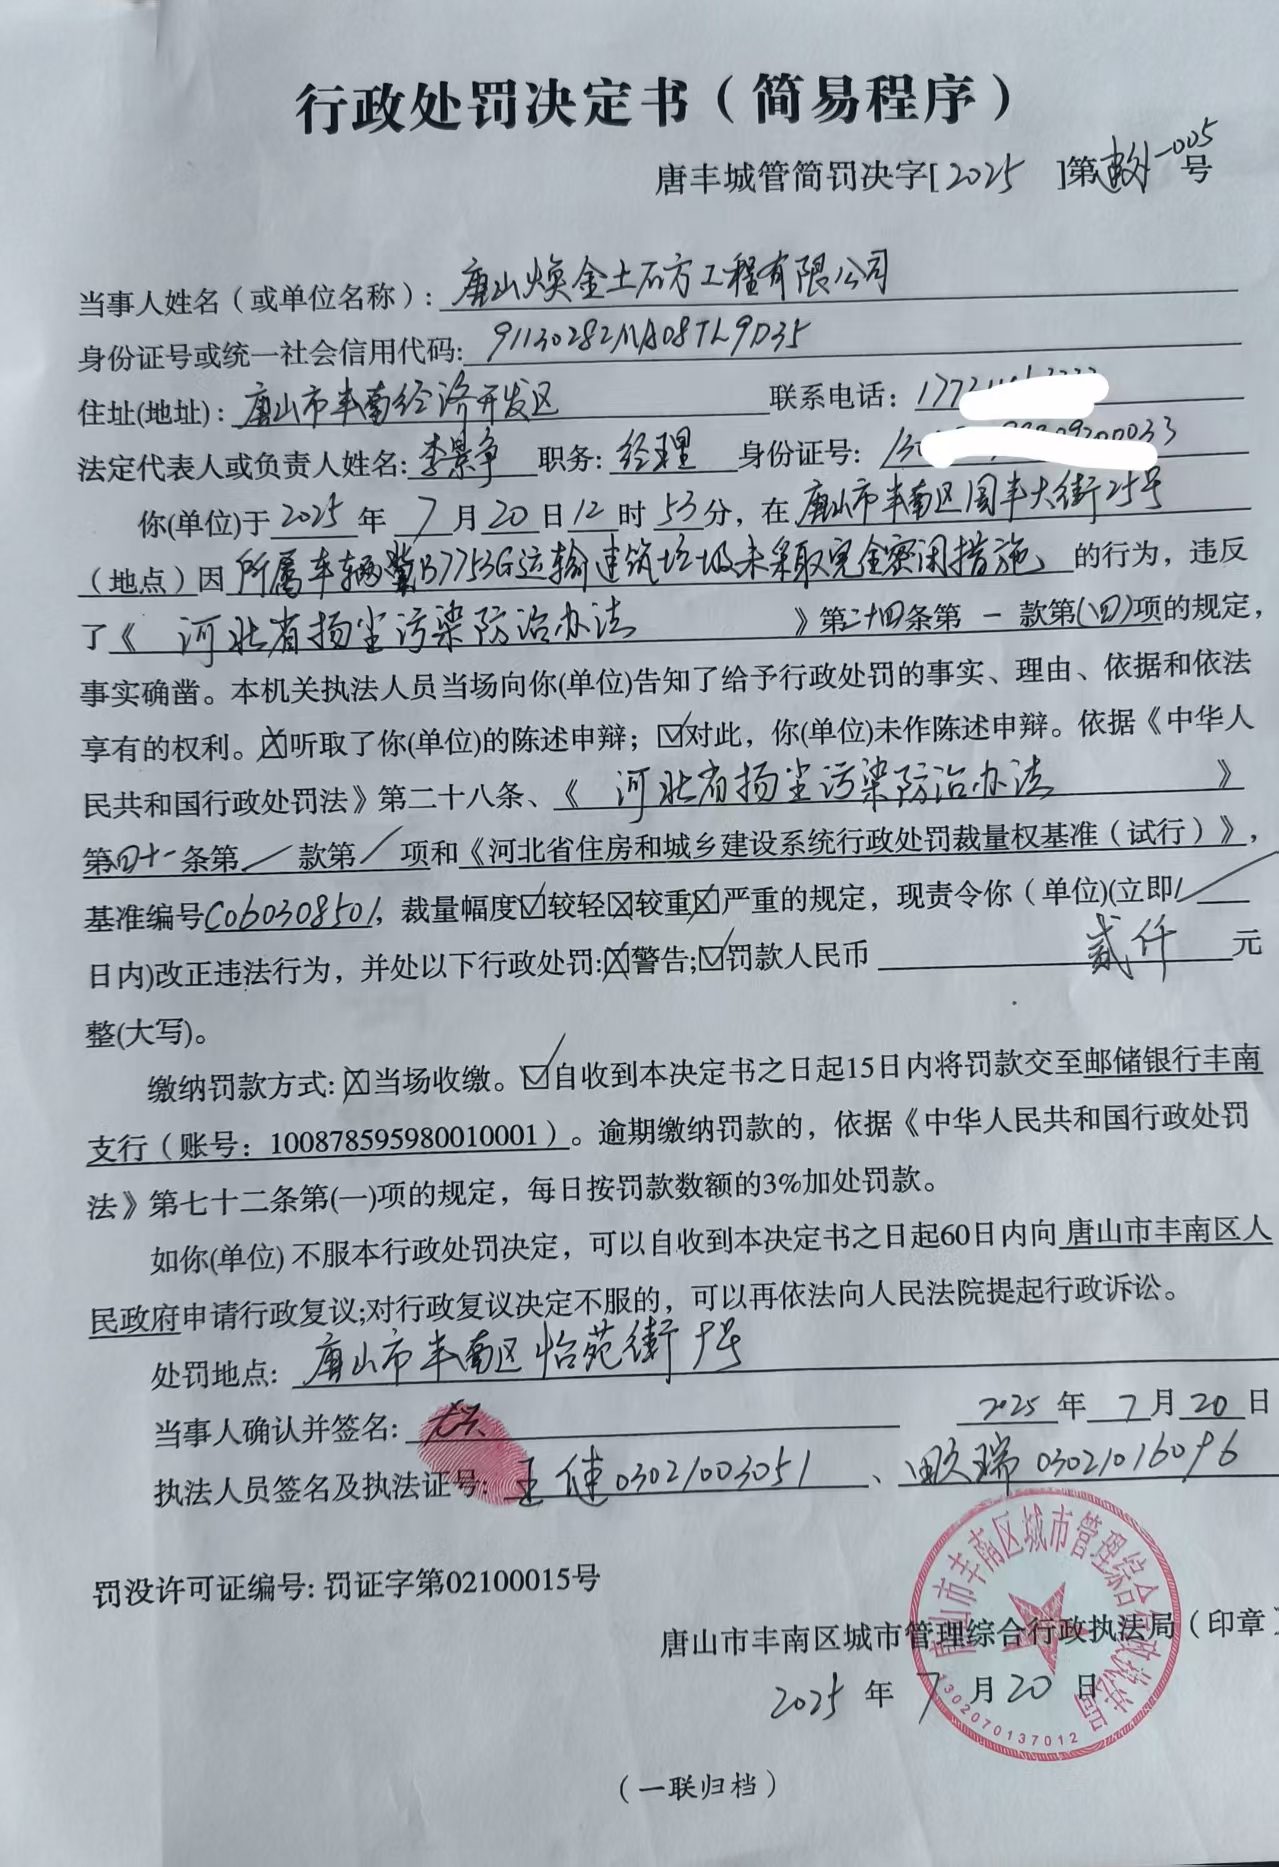 行政处罚决定书（简易程序）
唐丰城管简罚决字[2025]第 -005号
当事人姓名（或单位名称）：唐山焕金土石方工程有限公司
身份证号或统一社会信用代码：91130282MA08TL9D35
住址(地址)：唐山市丰南经济开发区 联系电话：177
法定代表人或负责人姓名:李景争 职务:经理 身份证号:
你(单位)于2025年7月20日12时53分，在唐山市丰南区国丰大街25号
（地点）因所属车辆冀B7753G运输建筑垃圾未采取完全密闭措施 的行为，违反
了《河北省扬尘污染防治办法》第二十四条第一款第(四)项的规定，
事实确凿。本机关执法人员当场向你(单位)告知了给予行政处罚的事实、理由、依据和依法
享有的权利。☒听取了你(单位)的陈述申辩；☑对此，你(单位)未作陈述申辩。依据《中华人
民共和国行政处罚法》第二十八条、《河北省扬尘污染防治办法》
第四十一条第／款第／项和《河北省住房和城乡建设系统行政处罚裁量权基准（试行）》，
基准编号C060308501，裁量幅度☑较轻☒较重☒严重的规定，现责令你（单位)(立即/／
日内)改正违法行为，并处以下行政处罚:☒警告;☑罚款人民币 贰仟 元
整(大写)。
缴纳罚款方式:☒当场收缴。☑自收到本决定书之日起15日内将罚款交至邮储银行丰南
支行（账号：100878595980010001）。逾期缴纳罚款的，依据《中华人民共和国行政处罚
法》第七十二条第(一)项的规定，每日按罚款数额的3%加处罚款。
如你(单位) 不服本行政处罚决定，可以自收到本决定书之日起60日内向唐山市丰南区人
民政府申请行政复议;对行政复议决定不服的，可以再依法向人民法院提起行政诉讼。
处罚地点：唐山市丰南区怡苑街9号
当事人确认并签名： 2025年7月20日
执法人员签名及执法证号:王健03021003051、 瑞03021016096
罚没许可证编号:罚证字第02100015号
唐山市丰南区城市管理综合行政执法局（印章）
2025年7月20日
唐山市丰南区城市管理综合行政执法局
1302070137012
（一联归档）